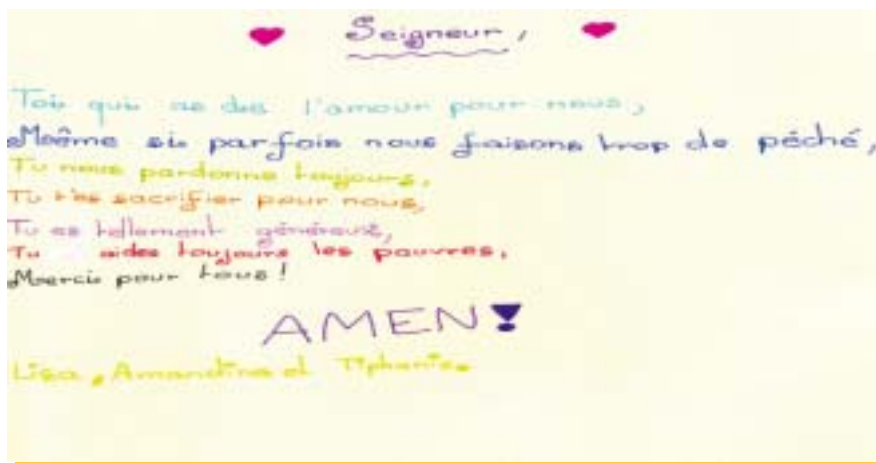 Seigneur,
Toi qui as de l'amour pour nous,
Même si parfois nous faisons trop de péché,
Tu nous pardonne toujours,
Tu t'es sacrifier pour nous,
Tu es tellement généreux,
Tu aides toujours les pauvres,
Merci pour tous !
AMEN!
Lisa, Amandine et Tiphanie.